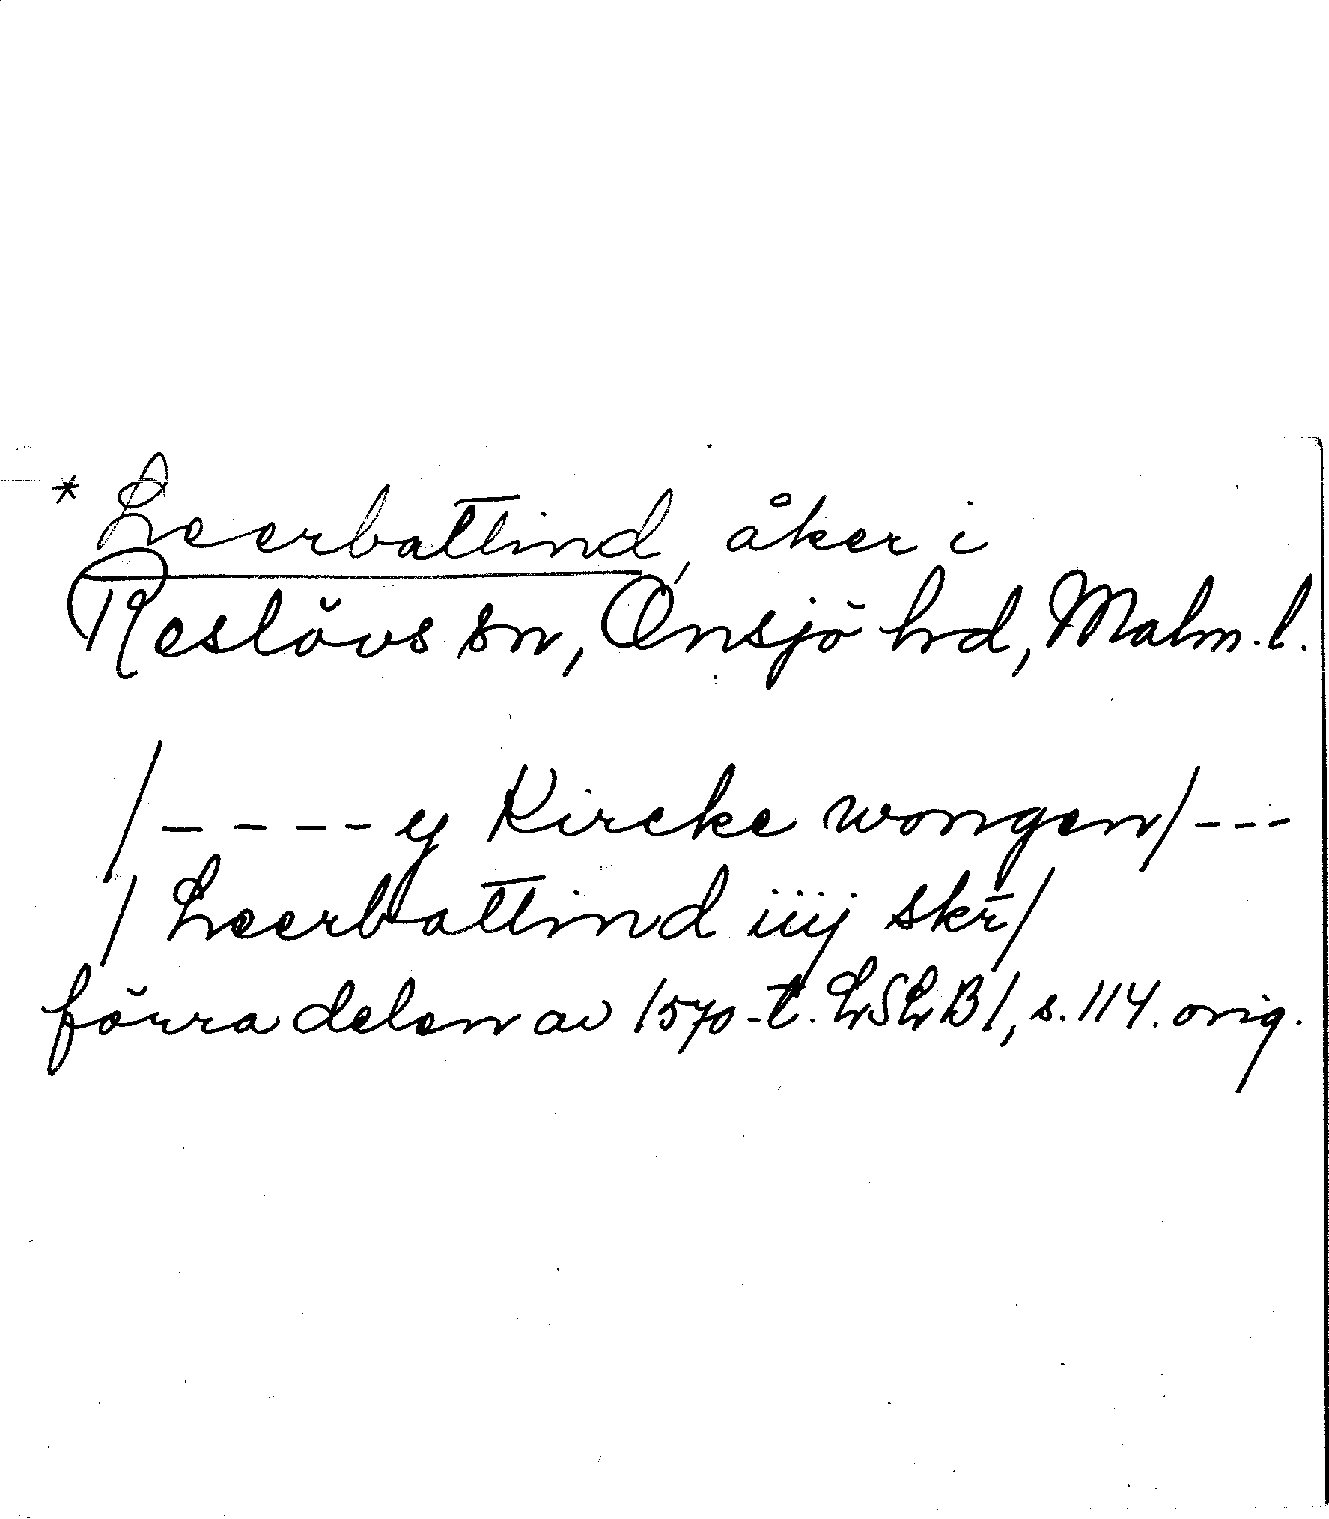 * Leerbattind, åker i
Reslövs sn, Onsjö hd, Malm. l.
/ - - - - y Kircke wongen / - - -
/ Leerbattind iiij skr̄ /
förra delen av 1570-t. LSLB 1, s. 114. orig.